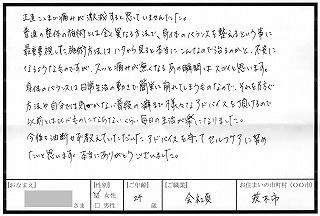 正直ここまで痛みが激減すると思っていませんでした。
普通の整体の施術とは全く異なる方法で、身体のバランスを整えるという事に
最重要視した施術方法はハタから見ると本当にこんなので治るのかと、不安に
なるようなものですが、スッと痛みが無くなるあの瞬間はスゴイと思います。
身体のバランスは日常生活の動きで簡単に崩れてしまうものなので、それを防ぐ
方法や自分では気がつかない普段の癖まで様々なアドバイスを頂けるので
以前とはくらべものにならないくらい、毎日の生活が楽になりました。
今後も油断せず教えていただいたアドバイスを守ってセルフケアに努め
たいと思います。本当にありがとうございました。
【おなまえ】 【性別】 【ご年齢】 【ご職業】 お住まいの市町村(〇〇市)
さま ☑女性 □男性 24歳 会社員 茨木市